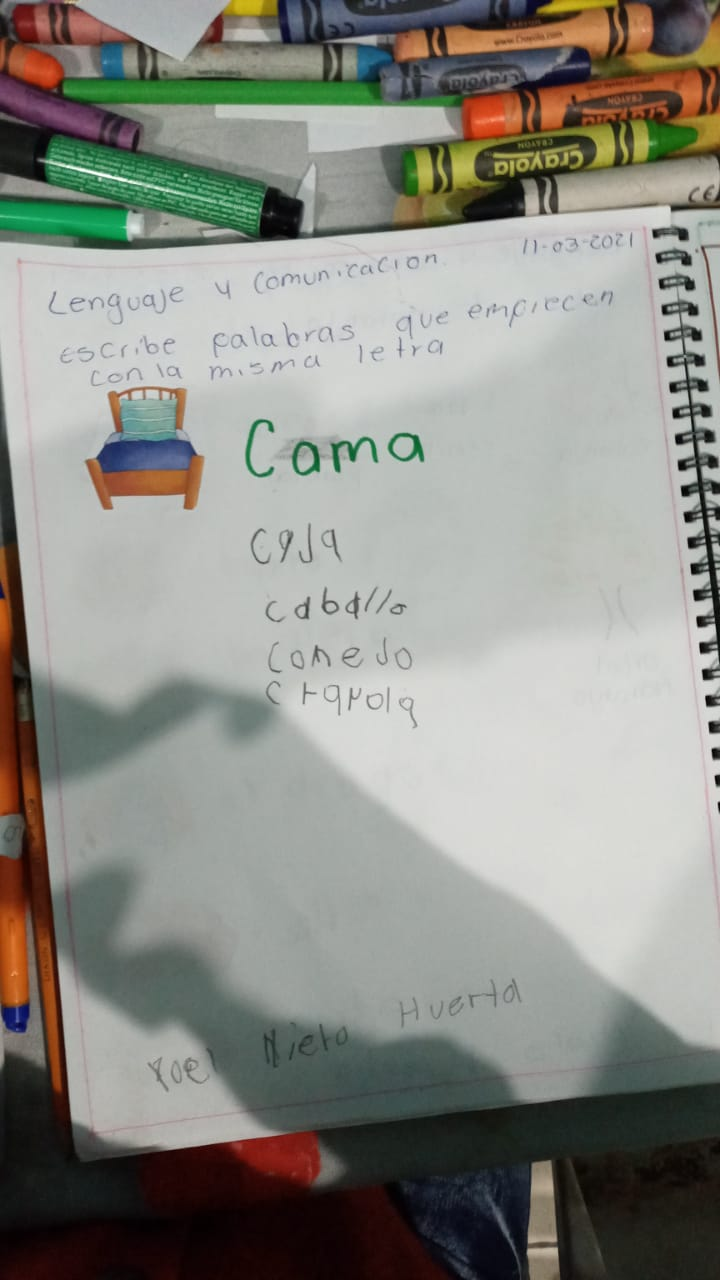 Crayola
www.Crayola.com
CRAYON
Crayola
Crayola
CRAYON
Crayola
11-03-2021
Lenguaje y Comunicacion.
Escribe palabras que empiecen
con la misma letra
Cama
caja
caballo
conejo
crayola
Yoel Nieto Huerta